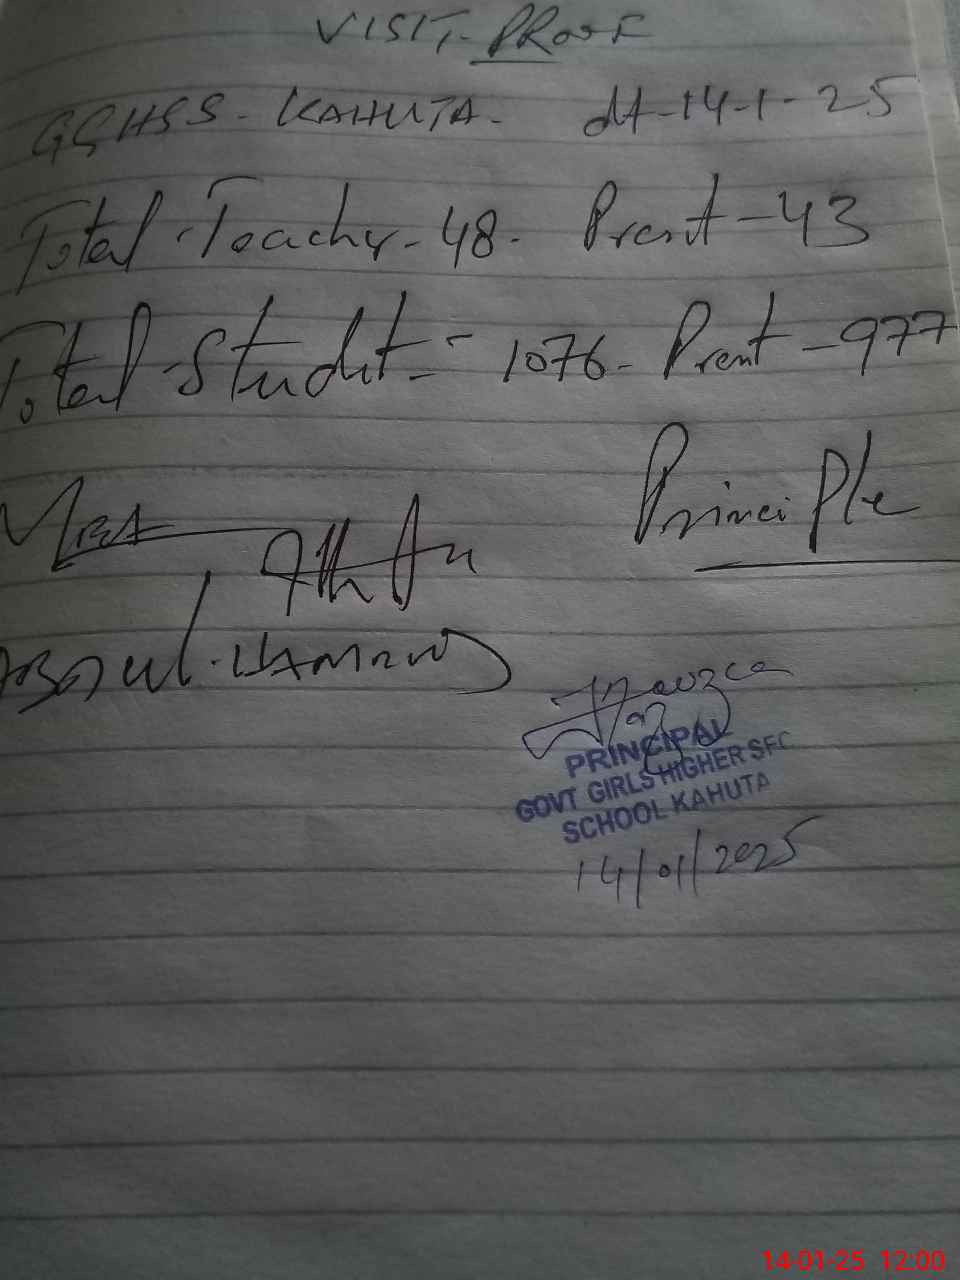 VISIT-PRooF
GGHSS - KAHUTA - dt-14-1-25
Total Teacher - 48 - Present - 43
Total Student = 1076 - Present - 977
Principle
MEA
ABDUL HAMEED
PRINCIPAL
GOVT GIRLS HIGHER SEC
SCHOOL KAHUTA
14/01/2025
14-01-25 12:00